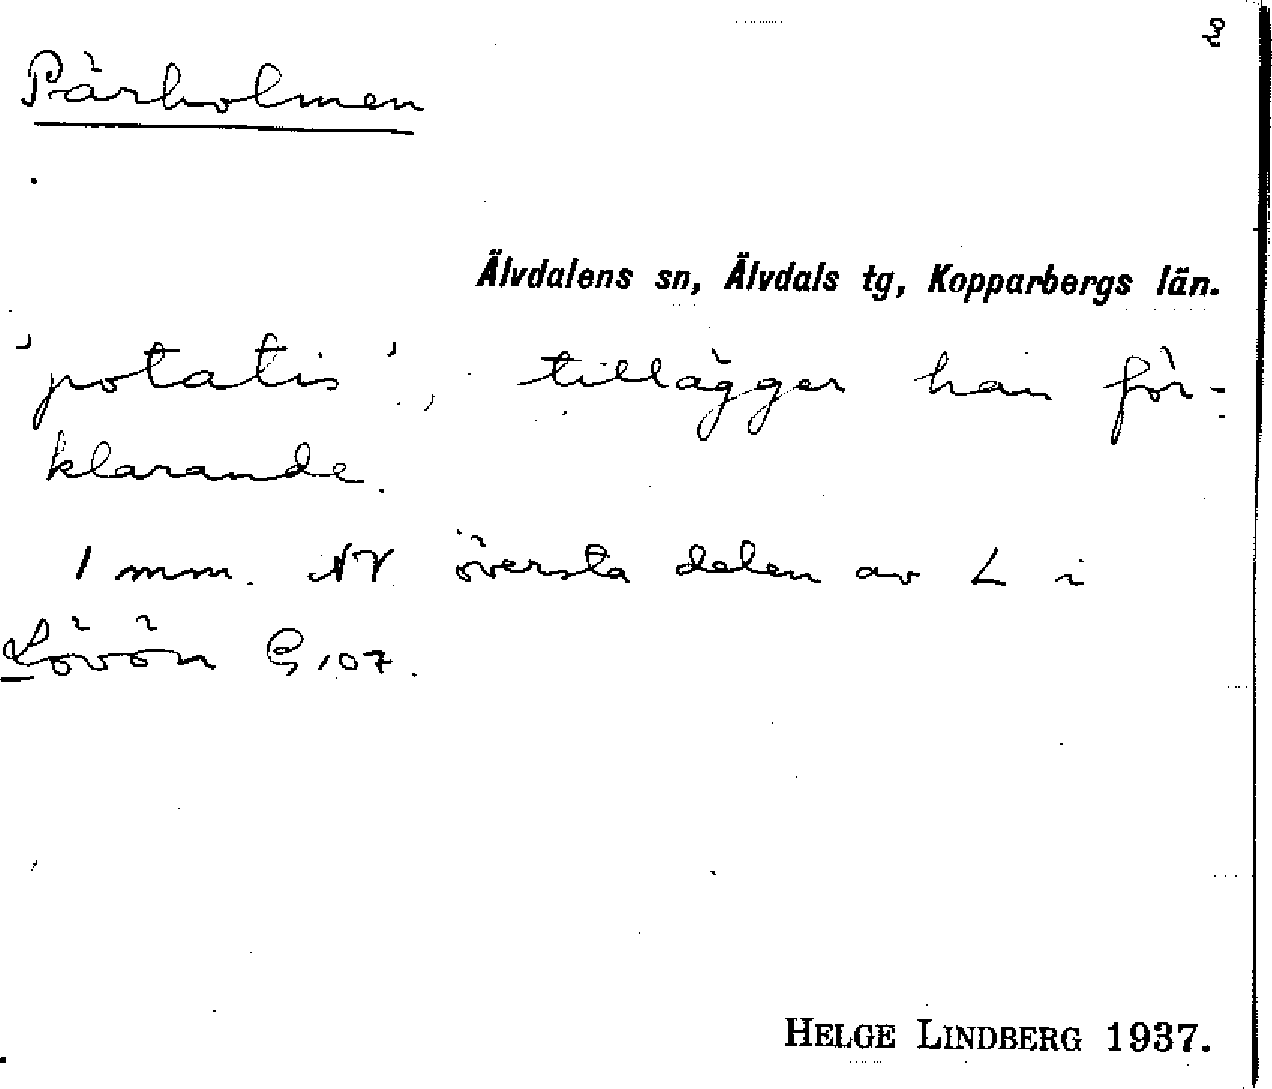 2
Pärholmen
Älvdalens sn, Älvdals tg, Kopparbergs län.
'potatis', tillägger han för-
klarande.
1 mm. NV översta delen av L i
Lövön G107.
HELGE LINDBERG 1937.